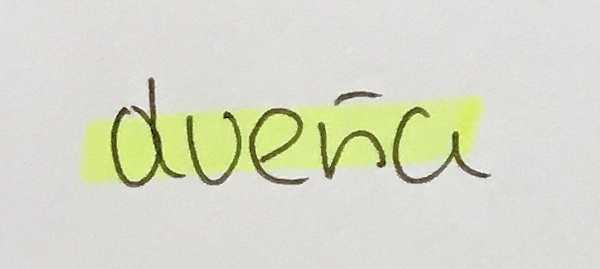 dueña